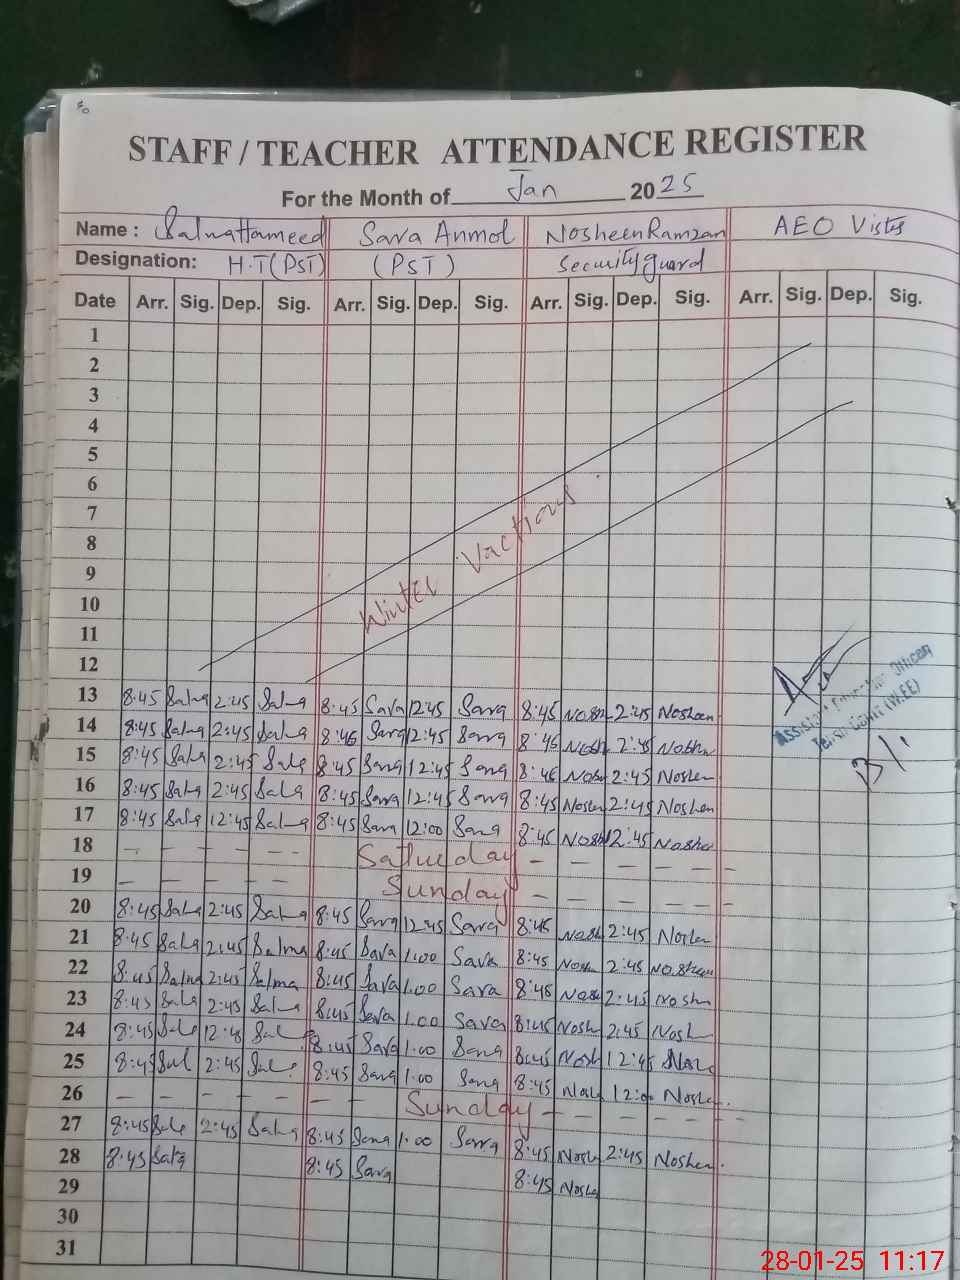 STAFF / TEACHER ATTENDANCE REGISTER
For the Month of Jan 2025
Name : Salma Hameed Sara Anmol Nosheen Ramzan AEO Vists
Designation: H.T (PST) (PST) Security guard
Date Arr. Sig. Dep. Sig. Arr. Sig. Dep. Sig. Arr. Sig. Dep. Sig. Arr. Sig. Dep. Sig.
1
2
3
4
5
6
7
8
9
10
11
12
Winter Vactions
13 8:45 Salma 2:45 Salma 8:45 Sara 12:45 Sara 8:45 Nosh 2:45 Nosheen
14 8:45 Salma 2:45 Salma 8:46 Sara 12:45 Sara 8:46 Nosh 2:45 Noshn
15 8:45 Sala 2:45 Sala 8:45 Sara 12:45 Sara 8:46 Nosh 2:45 Noshen
16 8:45 Sala 2:45 Sala 8:45 Sara 12:45 Sara 8:45 Noshn 2:45 Noshen
17 8:45 Sala 12:45 Salma 8:45 Sara 12:00 Sara 8:45 Nosh 12:45 Noshen
18 Saturday
19 Sunday
20 8:45 Sala 2:45 Salma 8:45 Sara 12:45 Sara 8:45 Nosh 2:45 Noshen
21 8:45 Sala 2:45 Salma 8:45 Sara 1:00 Sara 8:45 Noshn 2:45 Nosheen
22 8:45 Salma 2:45 Salma 8:45 Sara 1:00 Sara 8:45 Nosh 2:45 Noshn
23 8:45 Sala 2:45 Salma 8:45 Sara 1:00 Sara 8:45 Nosh 2:45 Nosh
24 8:45 Sale 12:45 Sal 8:45 Sara 1:00 Sara 8:45 Nosh 12:45
25 8:45 Sal 2:45 Sale 8:45 Sara 1:00 Sara 8:45 Nosh 12:00 Noshe
26 Sunday
27 8:45 Sale 2:45 Salma 8:45 Sara 1:00 Sara 8:45 Nosh 2:45 Noshen
28 8:45 Sala 8:45 Sara 8:45 Noshe
29
30
31
Assistant Education Officer
(W.EE)
28-01-25 11:17